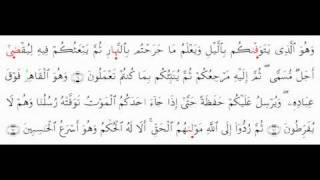 وَهُوَ ٱلَّذِى يَتَوَفَّىٰكُم بِٱلَّيْلِ وَيَعْلَمُ مَا جَرَحْتُم بِٱلنَّهَارِ ثُمَّ يَبْعَثُكُمْ فِيهِ لِيُقْضَىٰٓ
أَجَلٌ مُّسَمًّى ۖ ثُمَّ إِلَيْهِ مَرْجِعُكُمْ ثُمَّ يُنَبِّئُكُم بِمَا كُنتُمْ تَعْمَلُونَ وَهُوَ ٱلْقَاهِرُ فَوْقَ
عِبَادِهِۦ ۖ وَيُرْسِلُ عَلَيْكُمْ حَفَظَةً حَتَّىٰٓ إِذَا جَآءَ أَحَدَكُمُ ٱلْمَوْتُ تَوَفَّتْهُ رُسُلُنَا وَهُمْ لَا
يُفَرِّطُونَ ثُمَّ رُدُّوٓا۟ إِلَى ٱللَّهِ مَوْلَىٰهُمُ ٱلْحَقِّ ۚ أَلَا لَهُ ٱلْحُكْمُ وَهُوَ أَسْرَعُ ٱلْحَٰسِبِينَ